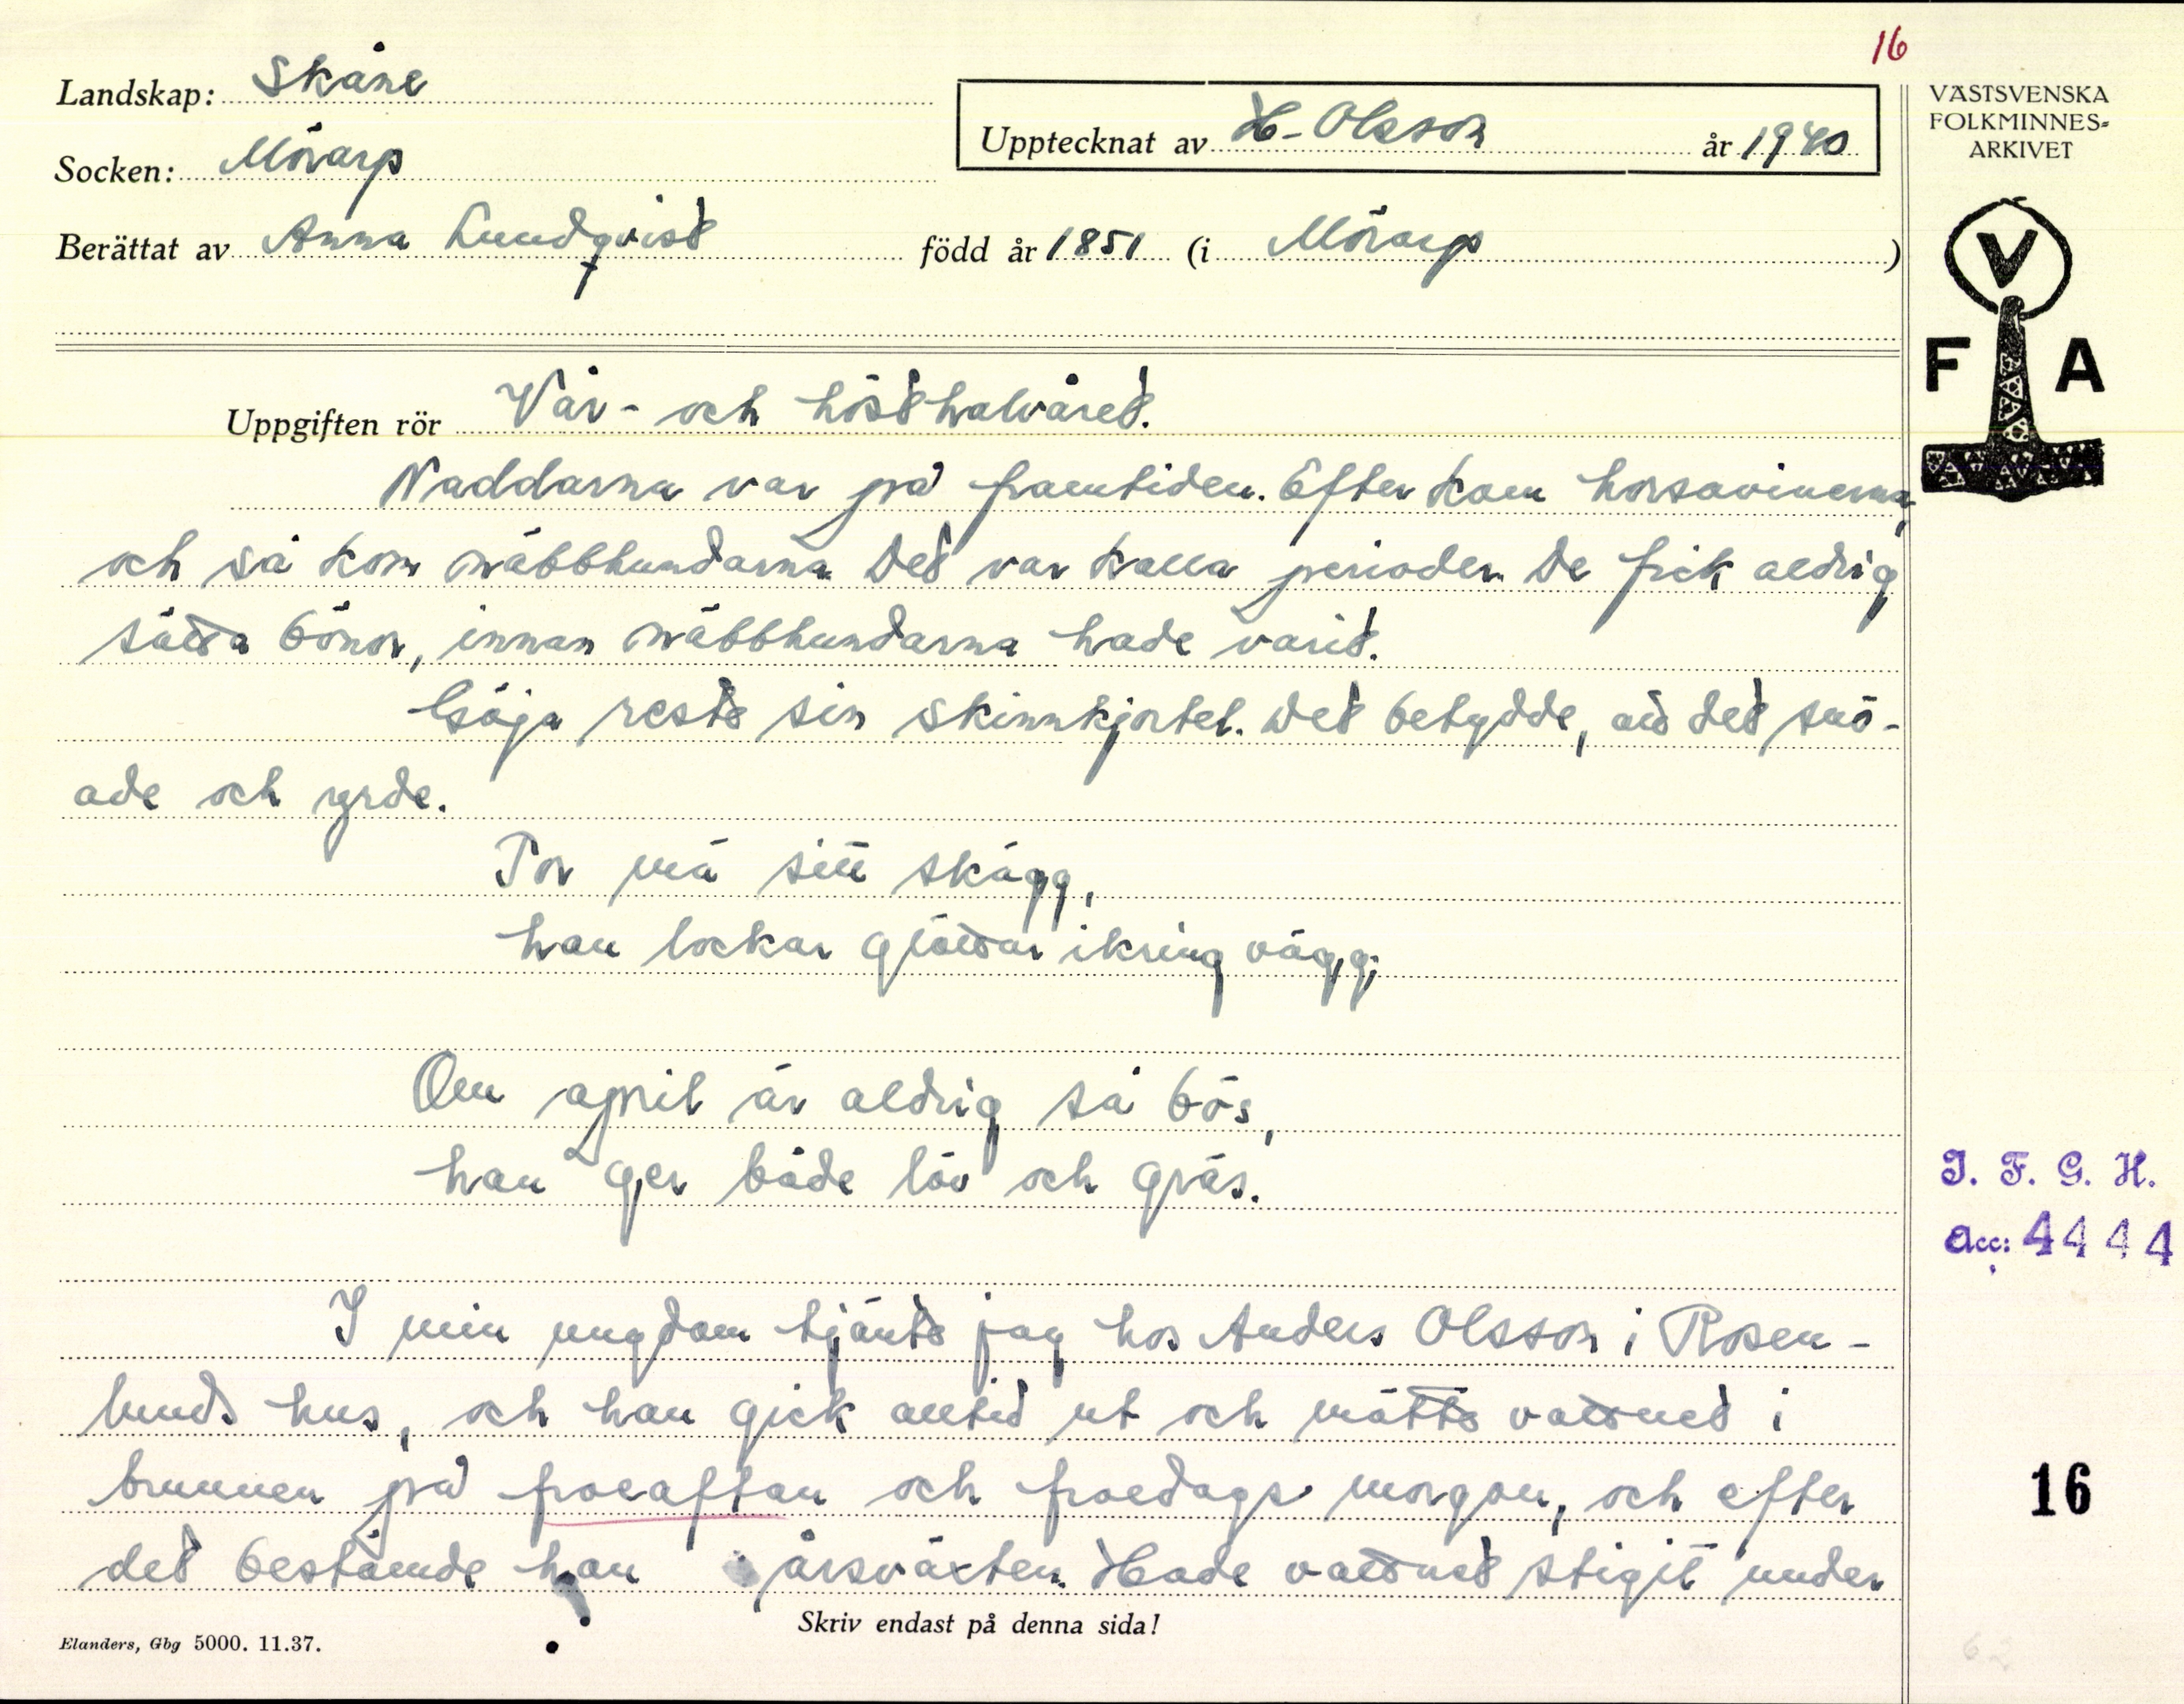 16
Landskap: Skåne
Socken: Mörarp
Upptecknat av H. Olsson år 1940
Berättat av Anna Lundqvist född år 1851 (i Mörarp)
VÄSTSVENSKA
FOLKMINNES-
ARKIVET
V
F A
Uppgiften rör Vår- och hösthalvåret.
Naddarna var på framtiden. Efter kom horsavinerna,
och så kom näbbhundarna. Det var kalla perioder. De fick aldrig
sätta bönor, innan näbbhundarna hade varit.
Göja reste sin skinnkjortel. Det betydde, att det snö-
ade och yrde.
Tor mä sitt skägg,
han lockar glöttar ikring vägg;
Om april är aldrig så bös,
han ger både löv och gräs.
I min ungdom tjänte jag hos Anders Olsson i Rosen-
lunds hus, och han gick alltid ut och mätte vattnet i
brunnen på froeaftan och froedags morgon, och efter
det bestämde han årsväxten. Hade vattnet stigit under
Skriv endast på denna sida!
Elanders, Gbg 5000. 11.37.
I. F. G. H.
Acc: 4444
16